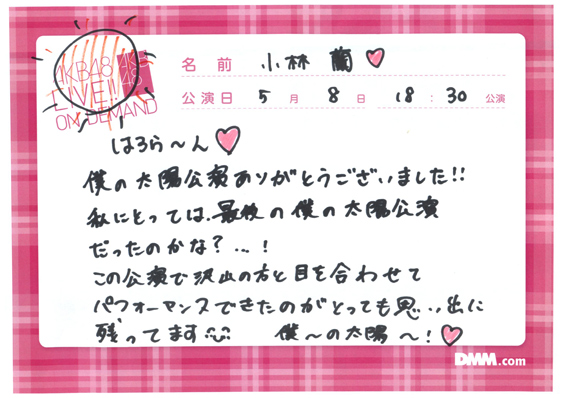 AKB48
LIVE!!
ON DEMAND
AKB
48
名前 小林 蘭
公演日 5月8日 18:30 公演
はろら〜ん
僕の太陽公演ありがとうございました!!
私にとっては、最後の僕の太陽公演
だったのかな?...!
この公演で沢山の方と目を合わせて
パフォーマンスできたのがとっても思い出に
残ってます 僕〜の太陽〜!
DMM.com